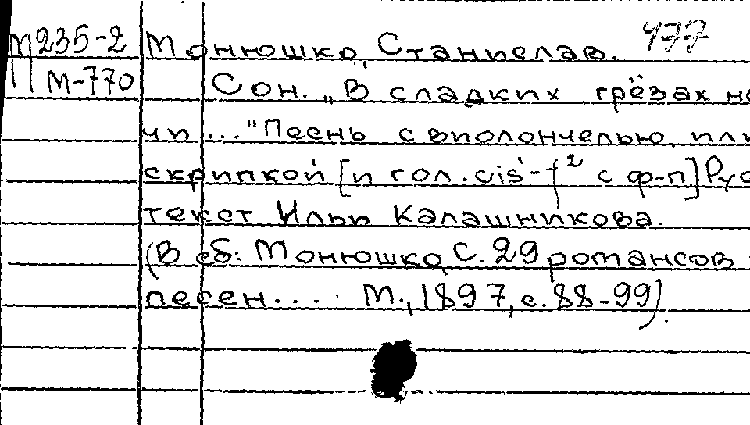 М235-2 Монюшко, Станислав. 477
М-770 Сон. „В сладких грёзах но
чи..." Песнь с виолончелью или
скрипкой [и гол. cis'-f² с ф-п] Рус
текст Ильи Калашникова.
(В сб: Монюшко, С. 29 романсов
песен.... М., 1897, с. 88-99).